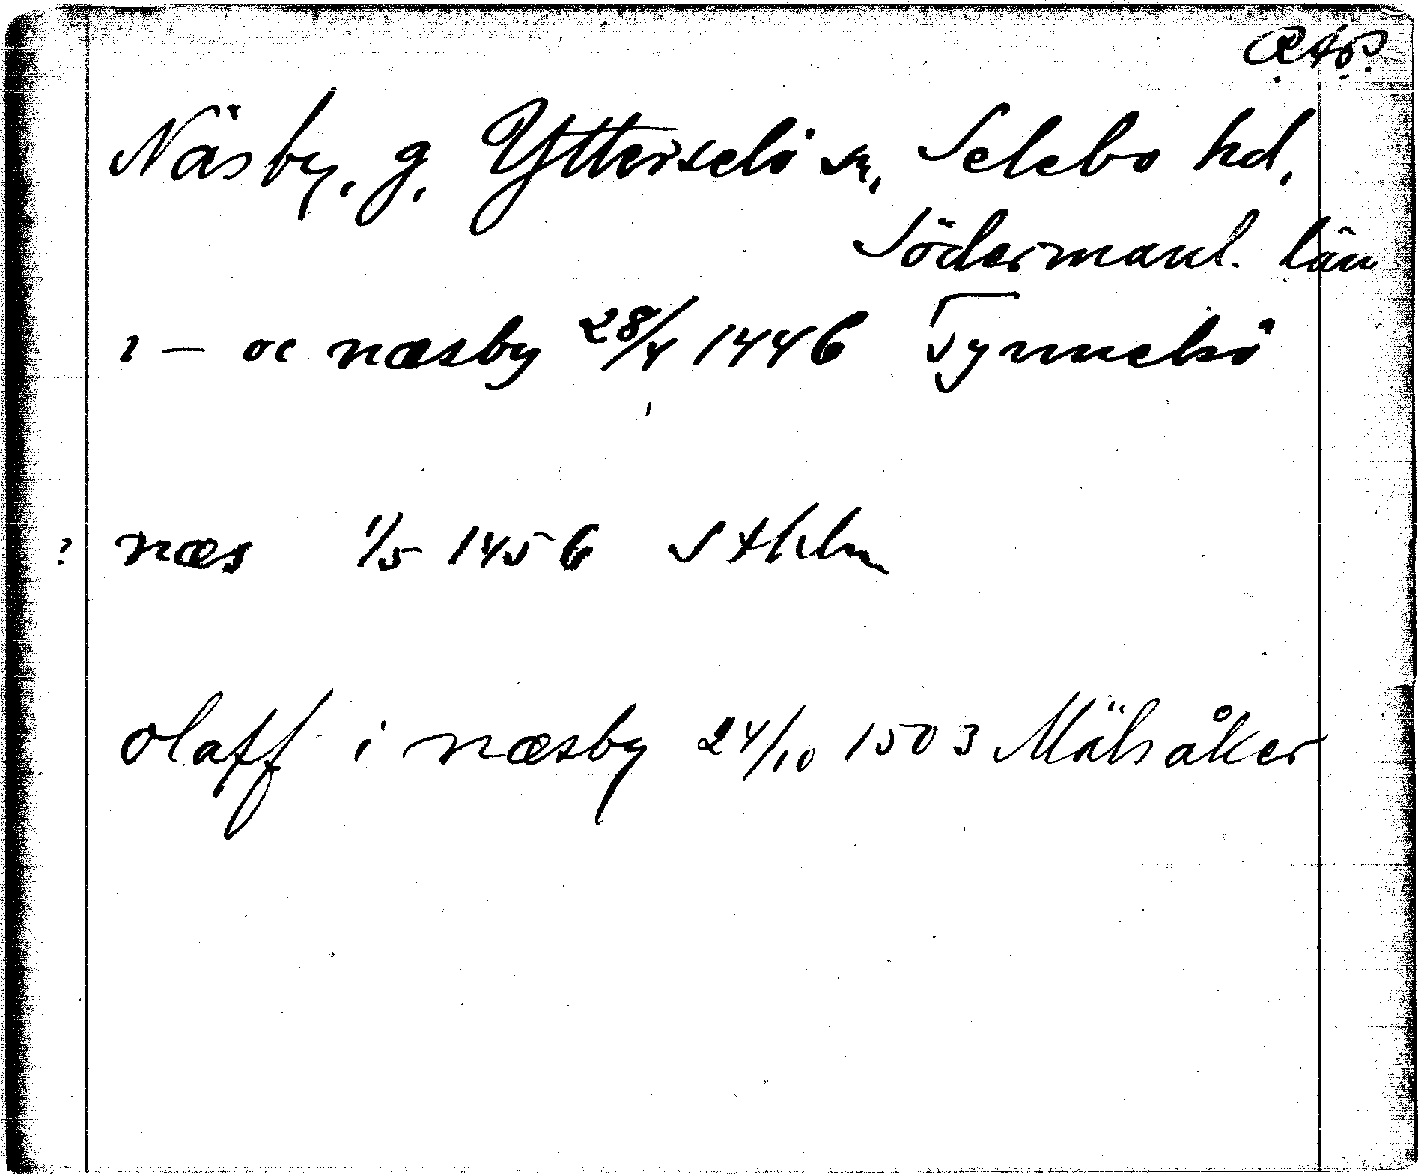 Näsby, g. Ytterselö sn, Selebo hd,
Södermanl. län
i — oc næsby 28/4 1446 Tynnelsö
? næs 1/5 1456 Sthlm
olaff i næsby 24/10 1503 Mälsåker